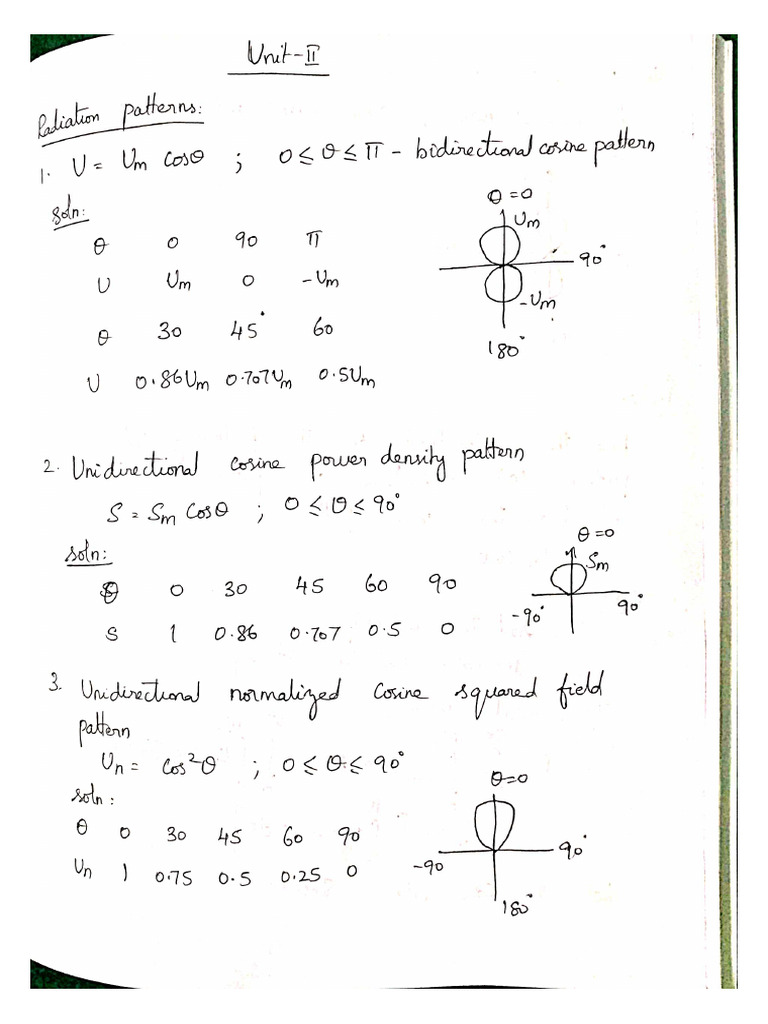 Unit-II
Radiation patterns:
1. U = Um cosθ ; 0 ≤ θ ≤ π - bidirectional cosine pattern
soln:
θ 0 90 π
U Um 0 -Um
θ 30 45° 60
U 0.86Um 0.707Um 0.5Um
θ=0
Um
90°
-Um
180°
2. Unidirectional cosine power density pattern
S = Sm Cosθ ; 0 ≤ θ ≤ 90°
soln:
θ 0 30 45 60 90
S 1 0.86 0.707 0.5 0
θ=0
Sm
-90° 90°
3. Unidirectional normalized cosine squared field
pattern
Un = cos²θ ; 0 ≤ θ ≤ 90°
soln:
θ 0 30 45 60 90
Un 1 0.75 0.5 0.25 0
θ=0
-90 90°
180°